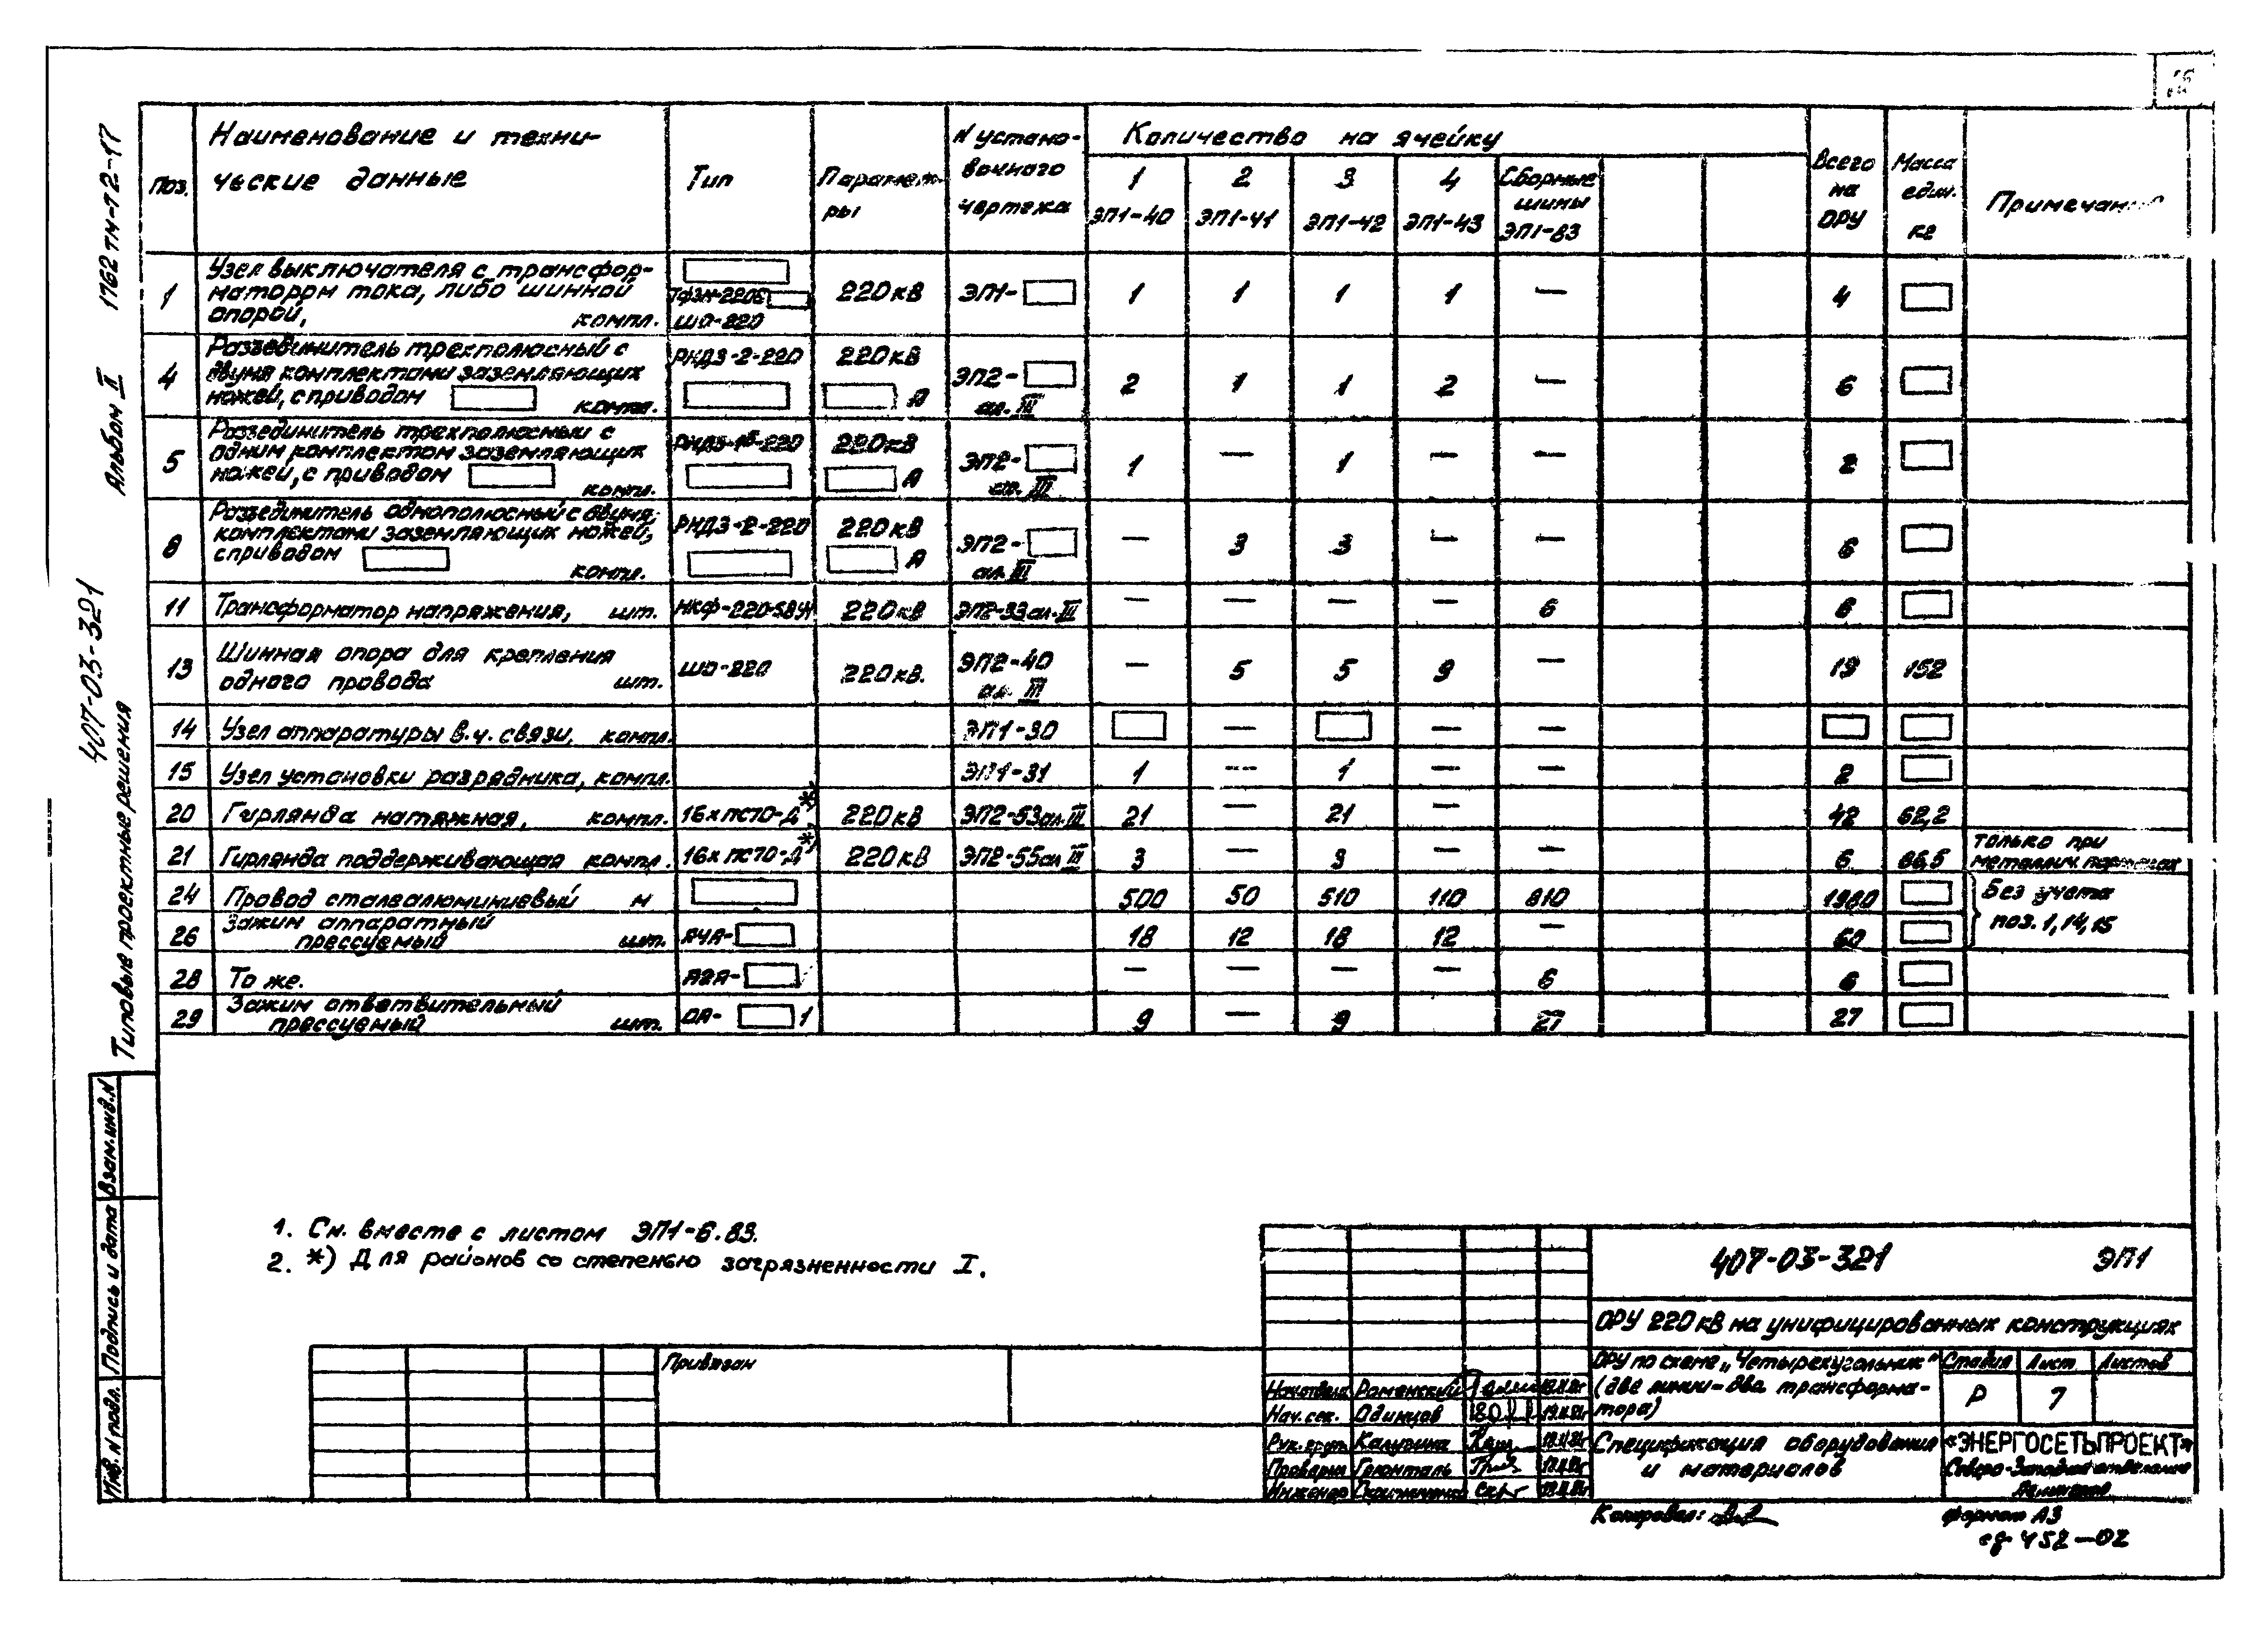 407-03-321
Типовые проектные решения Альбом II 1762тм-т2-17
Поз. Наименование и технические данные Тип Парамет-ры N устано-вочного чертежа Количество на ячейку Всего на ОРУ Масса един. кг Примечан
1 ЭП1-40 2 ЭП1-41 3 ЭП1-42 4 ЭП1-43 Сборные шины ЭП1-83
1 Узел выключателя с трансфор-
матором тока, либо шинной
опорой, компл. ТФЗМ-220Б ШО-220 220кВ ЭП1- 1 1 1 1 — 4
4 Разъединитель трехполюсный с
двумя комплектами заземляющих
ножей, с приводом компл. РНДЗ-2-220 220кВ А ЭП2- ал. III 2 1 1 2 — 6
5 Разъединитель трехполюсный с
одним комплектом заземляющих
ножей, с приводом компл. РНДЗ-1б-220 220кВ А ЭП2- ал. III 1 — 1 — — 2
8 Разъединитель однополюсный с двумя
комплектами заземляющих ножей,
с приводом компл. РНДЗ-2-220 220кВ А ЭП2- ал. III — 3 3 — — 6
11 Трансформатор напряжения, шт. НКФ-220-58У1 220кВ ЭП2-33 ал. III — — — — 6 6
13 Шинная опора для крепления
одного провода шт. ШО-220 220кВ. ЭП2-40 ал. III — 5 5 9 — 19 152
14 Узел аппаратуры в.ч. связи, компл. ЭП1-30 — — —
15 Узел установки разрядника, компл. ЭП1-31 1 — 1 — — 2
20 Гирлянда натяжная, компл. 16хПС70-Д*) 220кВ ЭП2-53 ал. III 21 — 21 — 42 62,2
21 Гирлянда поддерживающая компл. 16хПС70-Д*) 220кВ ЭП2-55 ал III 3 — 3 — — 6 66,5 только при металлич. порталах
24 Провод сталеалюминиевый м 500 50 510 110 810 1980 Без учета поз. 1, 14, 15
26 Зажим аппаратный
прессуемый шт. А4А- 18 12 18 12 — 60
28 То же. А2А- — — — — 6 6
29 Зажим ответвительный
прессуемый шт. ОА- 1 9 — 9 27 27
1. См. вместе с листом ЭП1-6.83.
2. *) Для районов со степенью загрязненности I.
Взам. инв. N
Подпись и дата
Инв. N подл.
Привязан
407-03-321 ЭП1
ОРУ 220кВ на унифицированных конструкциях
ОРУ по схеме „Четырехугольник"
(две линии-два трансформа-
тора)
Стадия Лист Листов
Р 7
Нач. отдела Роменский
Нач. сек. Одинцов
Рук. групп Калинина
Проверил
Инженер
Спецификация оборудования
и материалов
«ЭНЕРГОСЕТЬПРОЕКТ»
Северо-Западное отделение
Ленинград
Копировал:
формат А3
452-02